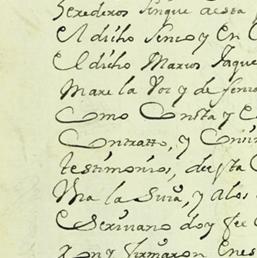 herederos sinque aesta
el dicho senso y en C
el dicho Marcos Jaque
Mare la Voz y de
Como Consta y C
Contratto, y
testimonio, desta C
Una la suia, y a los
Escrivano doy fee C
Xpnz firmaron Enes